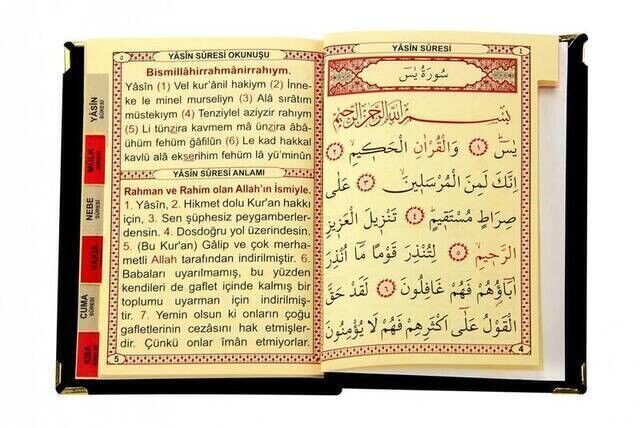 YÂSİN SÛRESİ
٤
سُورَةُ يٰسٓ
بِسْمِ اللّٰهِ الرَّحْمٰنِ الرَّحِيمِ
يٰسٓ ﴿١﴾ وَالْقُرْاٰنِ الْحَكِيمِ ﴿٢﴾
اِنَّكَ لَمِنَ الْمُرْسَلِينَ ﴿٣﴾ عَلٰى
صِرَاطٍ مُسْتَقِيمٍ ﴿٤﴾ تَنْزِيلَ الْعَزِيزِ
الرَّحِيمِ ﴿٥﴾ لِتُنْذِرَ قَوْمًا مَٓا اُنْذِرَ
اٰبَٓاؤُهُمْ فَهُمْ غَافِلُونَ ﴿٦﴾ لَقَدْ حَقَّ
الْقَوْلُ عَلٰٓى اَكْثَرِهِمْ فَهُمْ لَا يُؤْمِنُونَ
4
٥
YÂSİN SÛRESİ OKUNUŞU
Bismillâhirrahmânirrahıym.
Yâsîn (1) Vel kur'ânil hakiym (2) İnne-
ke le minel murseliyn (3) Alâ sırâtım
müstekıym (4) Tenziylel aziyzir rahiym
(5) Li tünzira kavmem mâ ünzira âbâ-
ühüm fehüm ğâfilûn (6) Le kad hakkal
kavlü alâ ekserihim fehüm lâ yü'minûn
YÂSİN SÛRESİ ANLAMI
Rahman ve Rahim olan Allah'ın İsmiyle.
1. Yâsîn, 2. Hikmet dolu Kur'an hakkı
için, 3. Sen şüphesiz peygamberler-
densin. 4. Dosdoğru yol üzerindesin.
5. (Bu Kur'an) Gâlip ve çok merha-
metli Allah tarafından indirilmiştir. 6.
Babaları uyarılmamış, bu yüzden
kendileri de gaflet içinde kalmış bir
toplumu uyarman için indirilmiş-
tir. 7. Yemin olsun ki onların çoğu
gafletlerinin cezâsını hak etmişler-
dir. Çünkü onlar îmân etmiyorlar.
5
YÂSİN
SÛRESİ
MÜLK
NEBE
SÛRESİ
VAKIA
CUMA
SÛRESİ
KISA